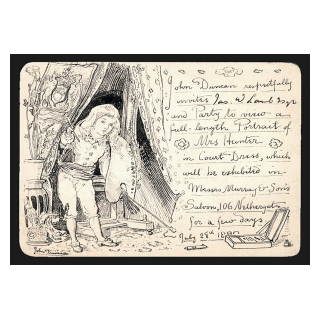 John Duncan respectfully
invites Jas. W Lamb Esqr
and Party to view a
full-length Portrait of
Mrs Hunter
in Court Dress, which
will be exhibited in
Messrs Murray & Sons
Saloon, 106 Nethergate
for a few days
July 28th
John Duncan